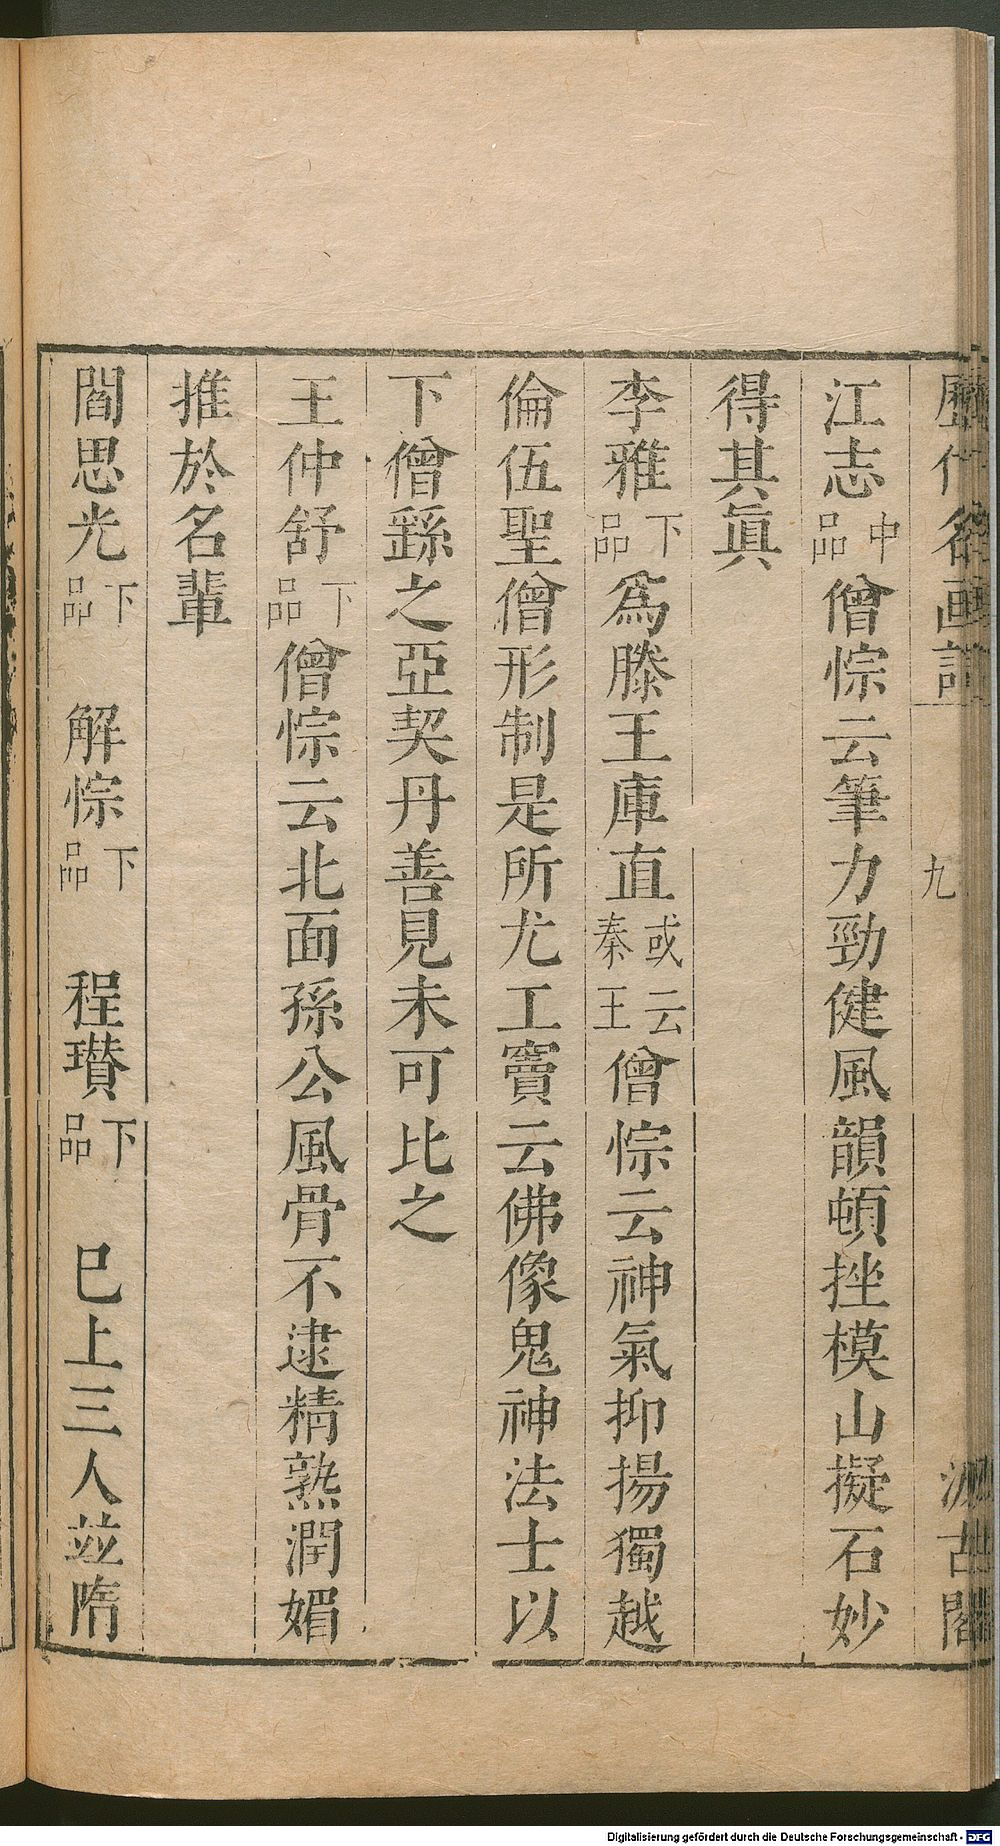 歷代名画記
九
汲古閣
江志中品僧悰云筆力勁健風韻頓挫模山擬石妙
得其眞
李雅下品爲滕王庫直或云秦王僧悰云神氣抑揚獨越
倫伍聖僧形制是所尤工竇云佛像鬼神法士以
下僧繇之亞契丹善見未可比之
王仲舒下品僧悰云北面孫公風骨不逮精熟潤媚
推於名輩
閻思光下品 解悰下品 程瓚下品 巳上三人並隋
Digitalisierung gefördert durch die Deutsche Forschungsgemeinschaft - DFG